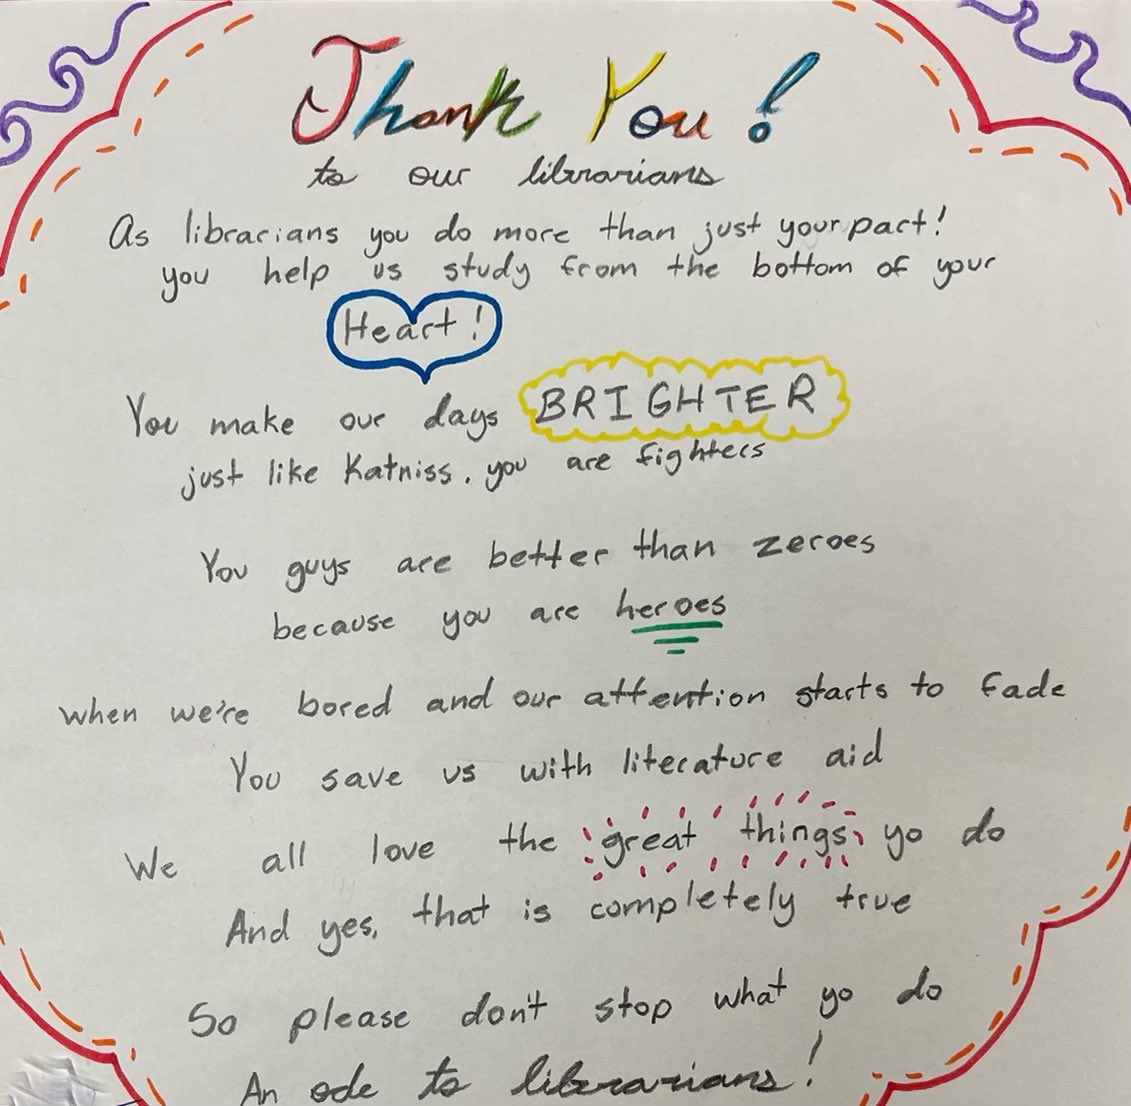 Thank You!
to our librarians
As librarians you do more than just your part!
you help us study from the bottom of your
Heart!
You make our days BRIGHTER
just like Katniss, you are fighters
You guys are better than zeroes
because you are heroes
when we're bored and our attention starts to fade
You save us with literature aid
We all love the great things yo do
And yes, that is completely true
So please don't stop what yo do
An ode to librarians!